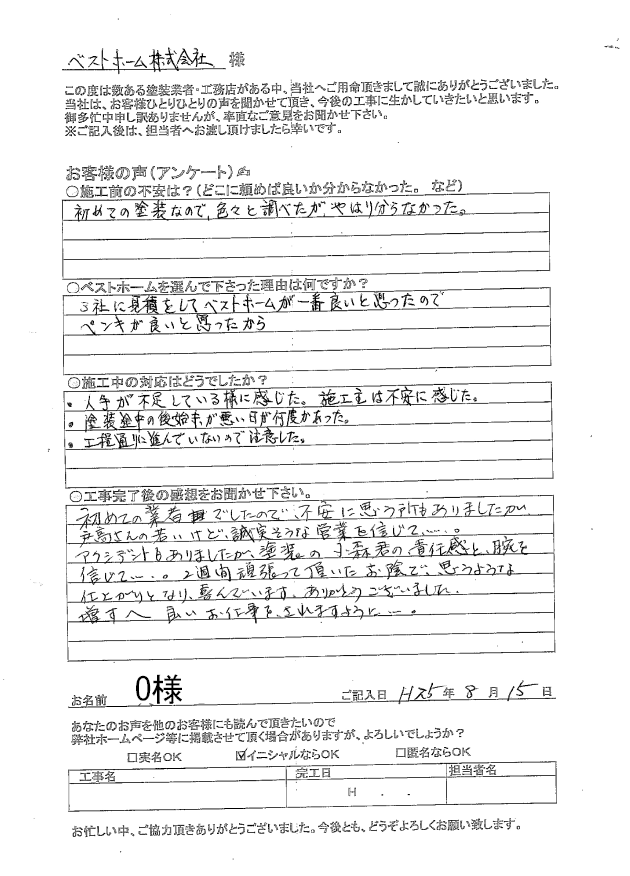 ベストホーム株式会社 様
この度は数ある塗装業者・工務店がある中、当社へご用命頂きまして誠にありがとうございました。
当社は、お客様ひとりひとりの声を聞かせて頂き、今後の工事に生かしていきたいと思います。
御多忙中申し訳ありませんが、率直なご意見をお聞かせ下さい。
※ご記入後は、担当者へお渡し頂けましたら幸いです。
お客様の声(アンケート)✍
〇施工前の不安は?(どこに頼めば良いか分からなかった。 など)
初めての塗装なので、色々と調べたが、やはり分らなかった。
〇ベストホームを選んで下さった理由は何ですか?
3社に見積をしてベストホームが一番良いと思ったので
ペンキが良いと思ったから
〇施工中の対応はどうでしたか?
・人手が不足している様に感じた。施工主は不安に感じた。
・塗装途中の後始末が悪い日が何度かあった。
・工程通りに進んでいないので注意した。
〇工事完了後の感想をお聞かせ下さい。
初めての業者 でしたので、不安に思う所もありましたが
さんの若いけど、誠実そうな営業を信じて……。
アクシデントもありましたが、塗装の小森君の責任感と、腕を
信じて……。2週間頑張って頂いたお陰で、思うような
仕上がりとなり、喜んでいます。ありがとうございました。
増すへ良いお仕事をされますように……。
お名前 O様 ご記入日 H25年 8月 15日
あなたのお声を他のお客様にも読んで頂きたいので
弊社ホームページ等に掲載させて頂く場合がありますが、よろしいでしょうか?
□実名OK ☑イニシャルならOK □匿名ならOK
工事名 完工日 担当者名
H . .
お忙しい中、ご協力頂きありがとうございました。今後とも、どうぞよろしくお願い致します。